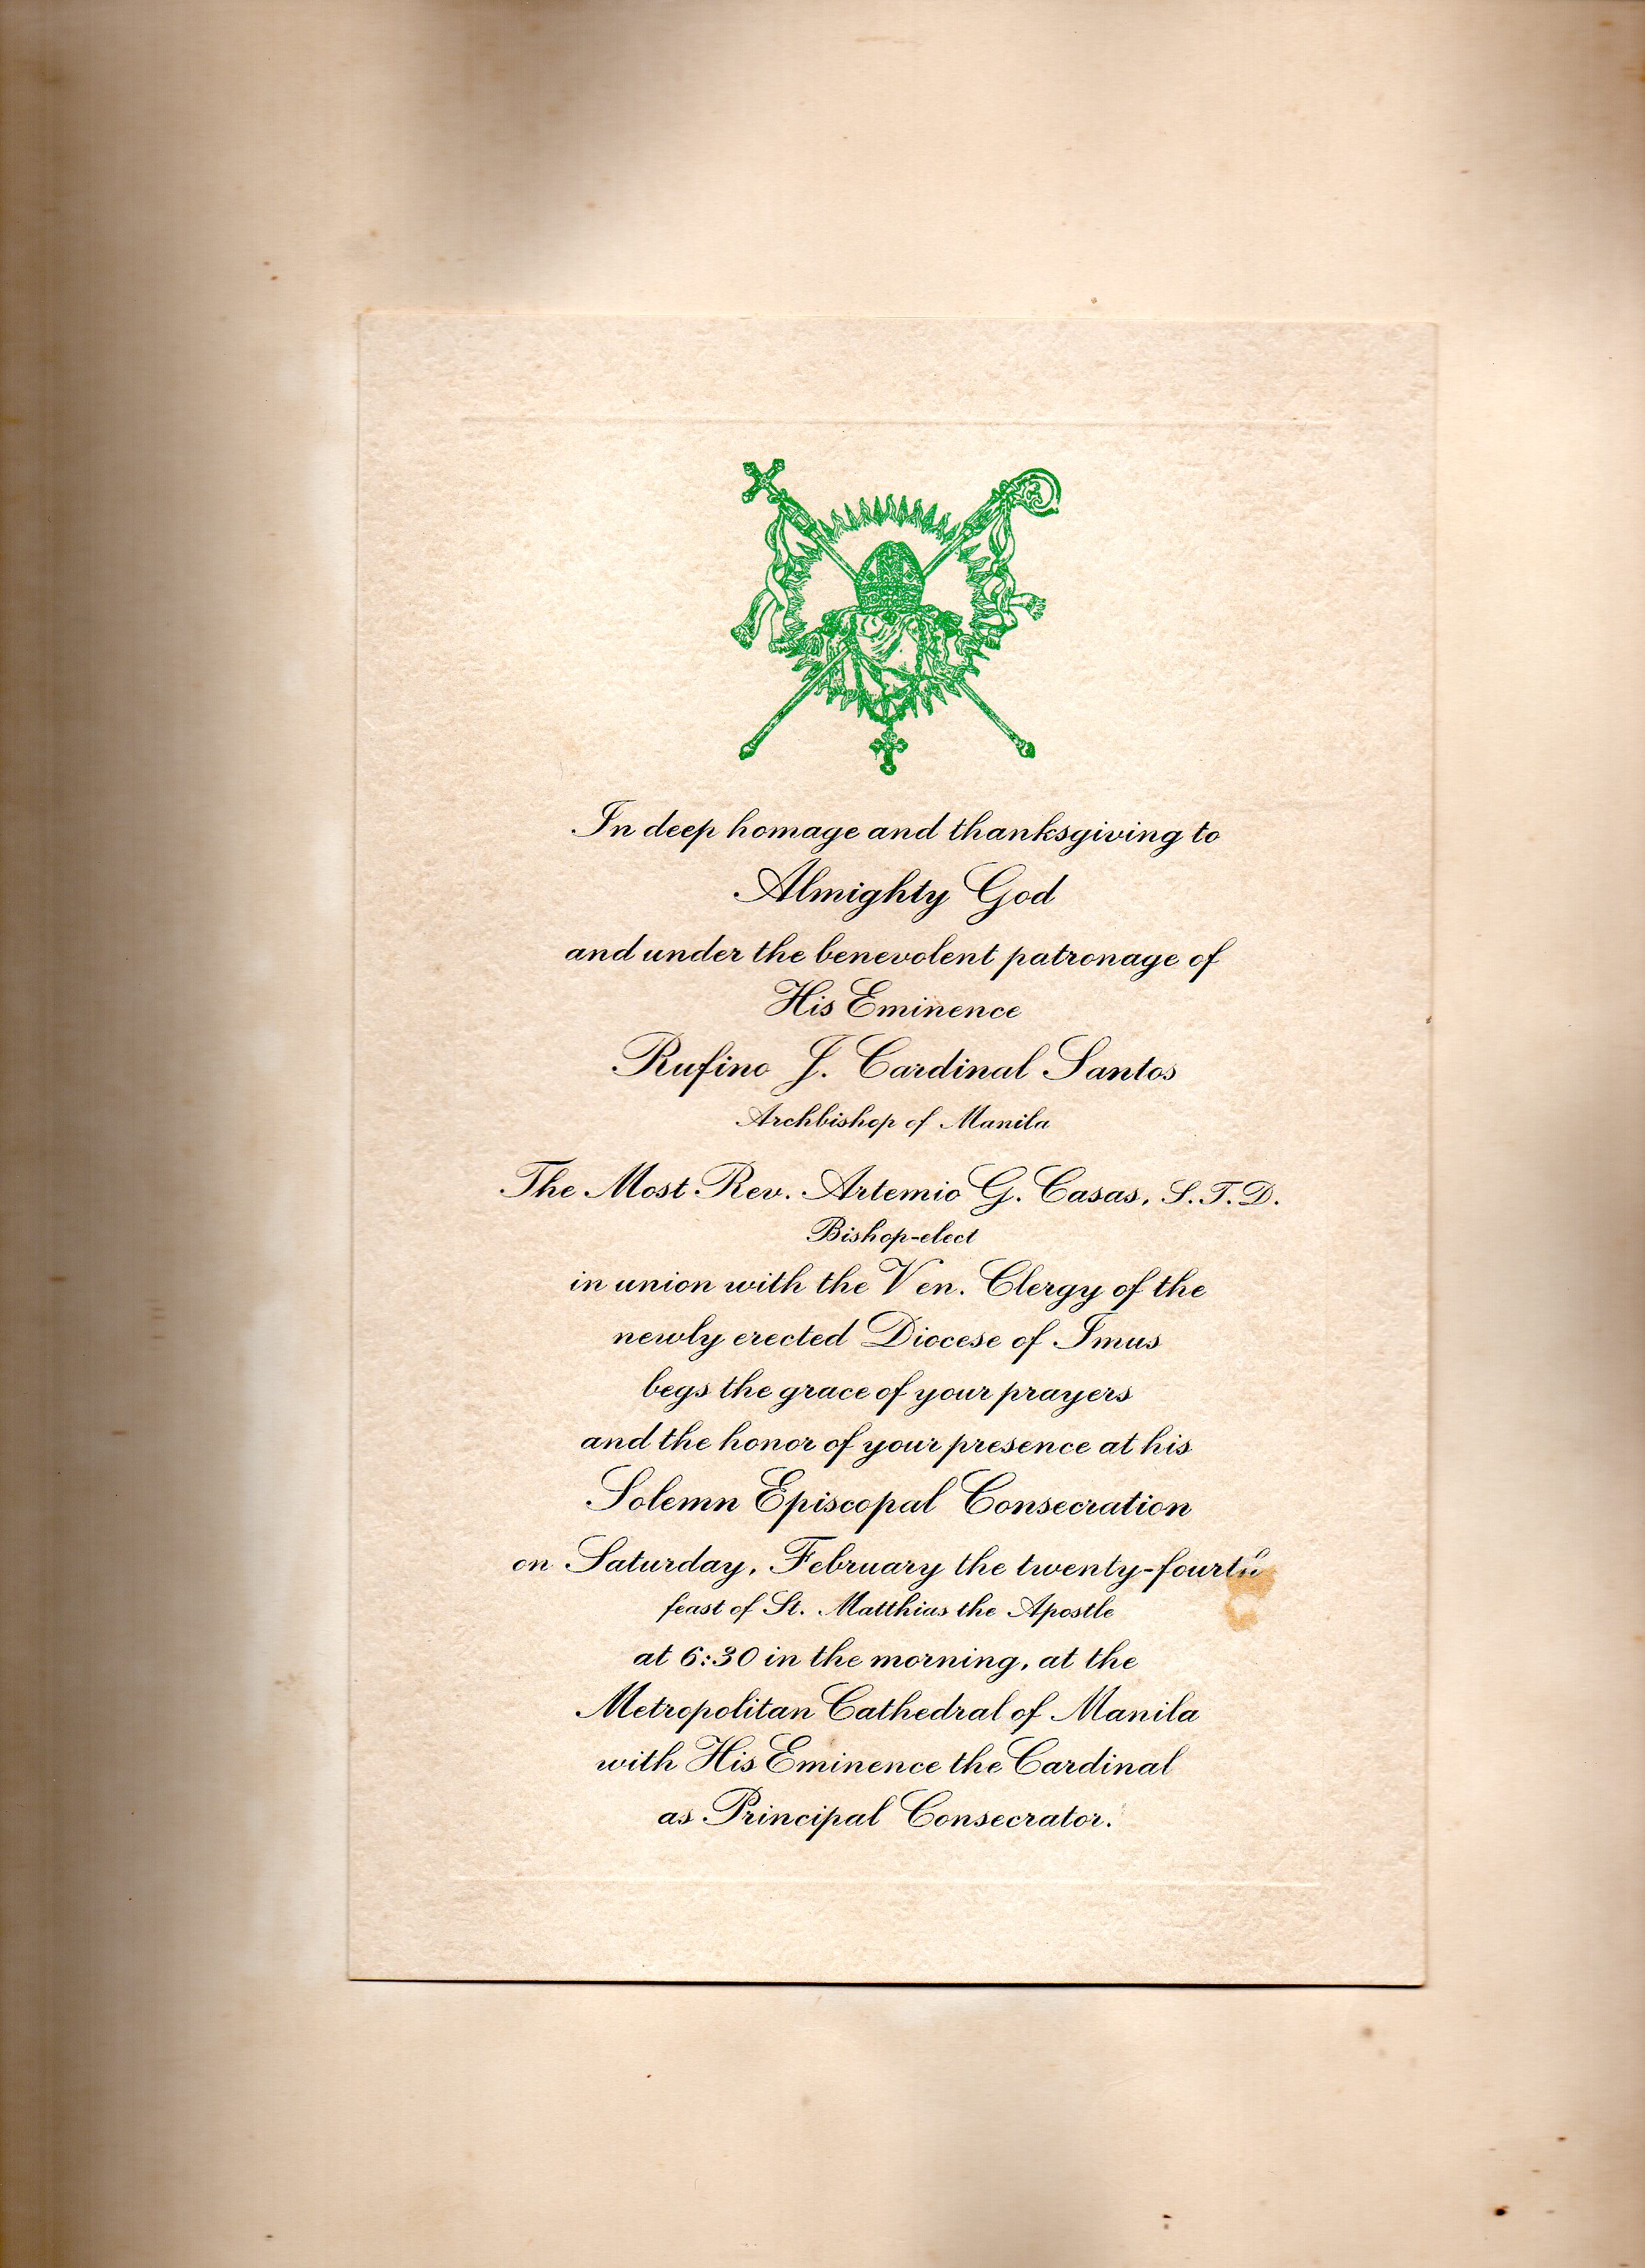 In deep homage and thanksgiving to
Almighty God
and under the benevolent patronage of
His Eminence
Rufino J. Cardinal Santos
Archbishop of Manila
The Most Rev. Artemio G. Casas, S.T.D.
Bishop-elect
in union with the Ven. Clergy of the
newly erected Diocese of Imus
begs the grace of your prayers
and the honor of your presence at his
Solemn Episcopal Consecration
on Saturday, February the twenty-fourth
feast of St. Matthias the Apostle
at 6:30 in the morning, at the
Metropolitan Cathedral of Manila
with His Eminence the Cardinal
as Principal Consecrator.